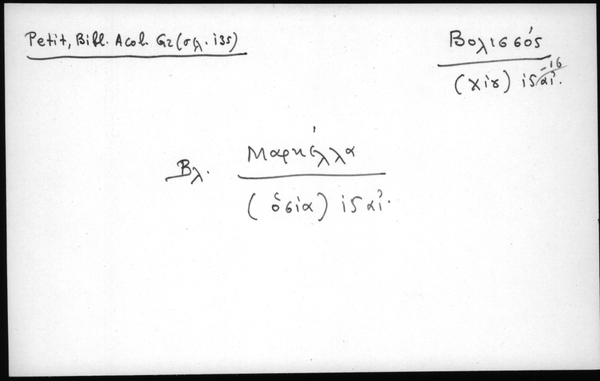 Petit, Bibl. Acol. Gr (σελ. 135)
Βολισσός
(Χίου) ις΄ αἰ.
-16
Βλ. Μαρκέλλα
(ὁσία) ις΄ αἰ.